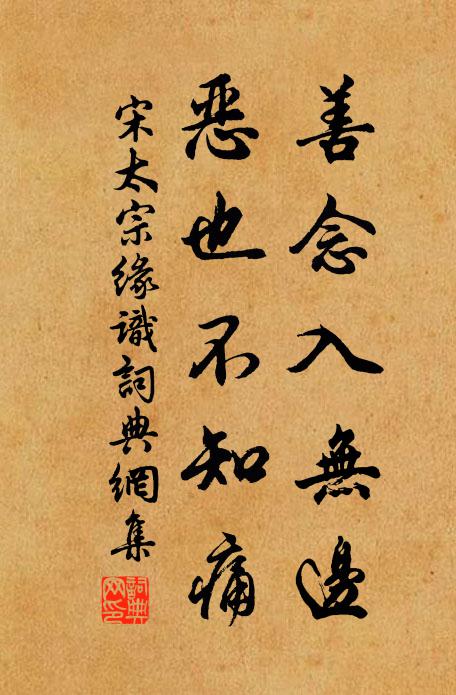 善念入無邊
惡也不知痛
宋太宗緣識詞典網集
詞典網印